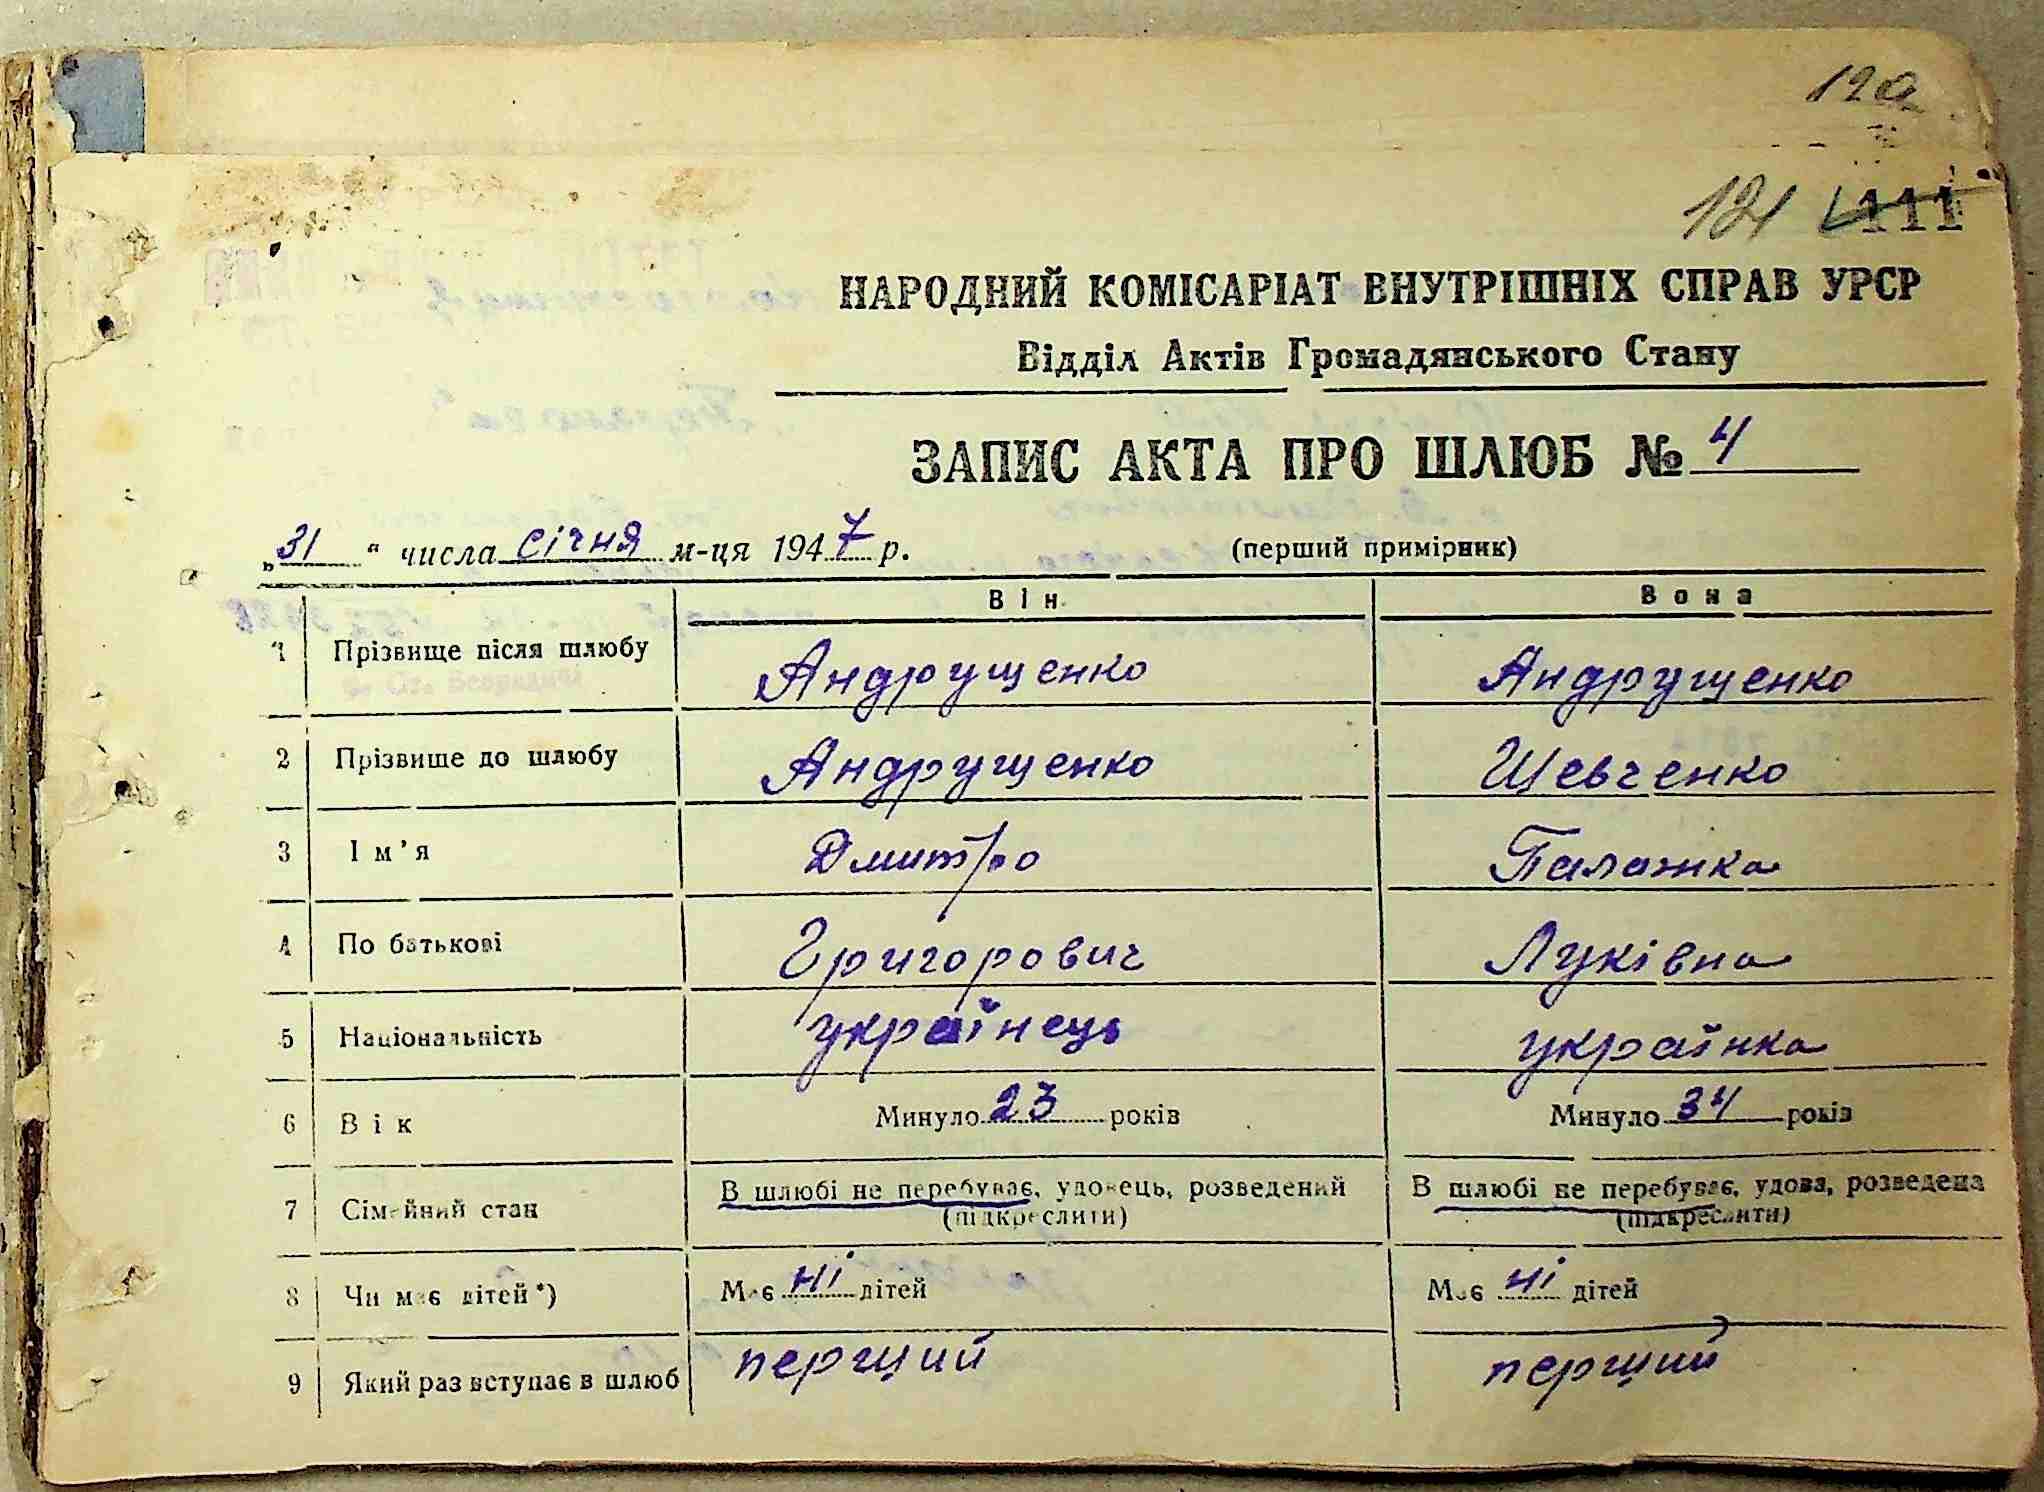 12а
121 111
НАРОДНИЙ КОМІСАРІАТ ВНУТРІШНІХ СПРАВ УРСР
Відділ Актів Громадянського Стану
ЗАПИС АКТА ПРО ШЛЮБ № 4
„31“ числа січня м-ця 1947 р. (перший примірник)
Він Вона
1 Прізвище після шлюбу Андрущенко Андрущенко
2 Прізвище до шлюбу Андрущенко Шевченко
3 Ім’я Дмитро Палажка
4 По батькові Григорович Луківна
5 Національність українець українка
6 Вік Минуло 23 років Минуло 34 років
7 Сімейний стан В шлюбі не перебуває, удовець, розведений В шлюбі не перебуває, удова, розведена
(підкреслити) (підкреслити)
8 Чи має дітей*) Має ні дітей Має ні дітей
9 Який раз вступає в шлюб перший перший